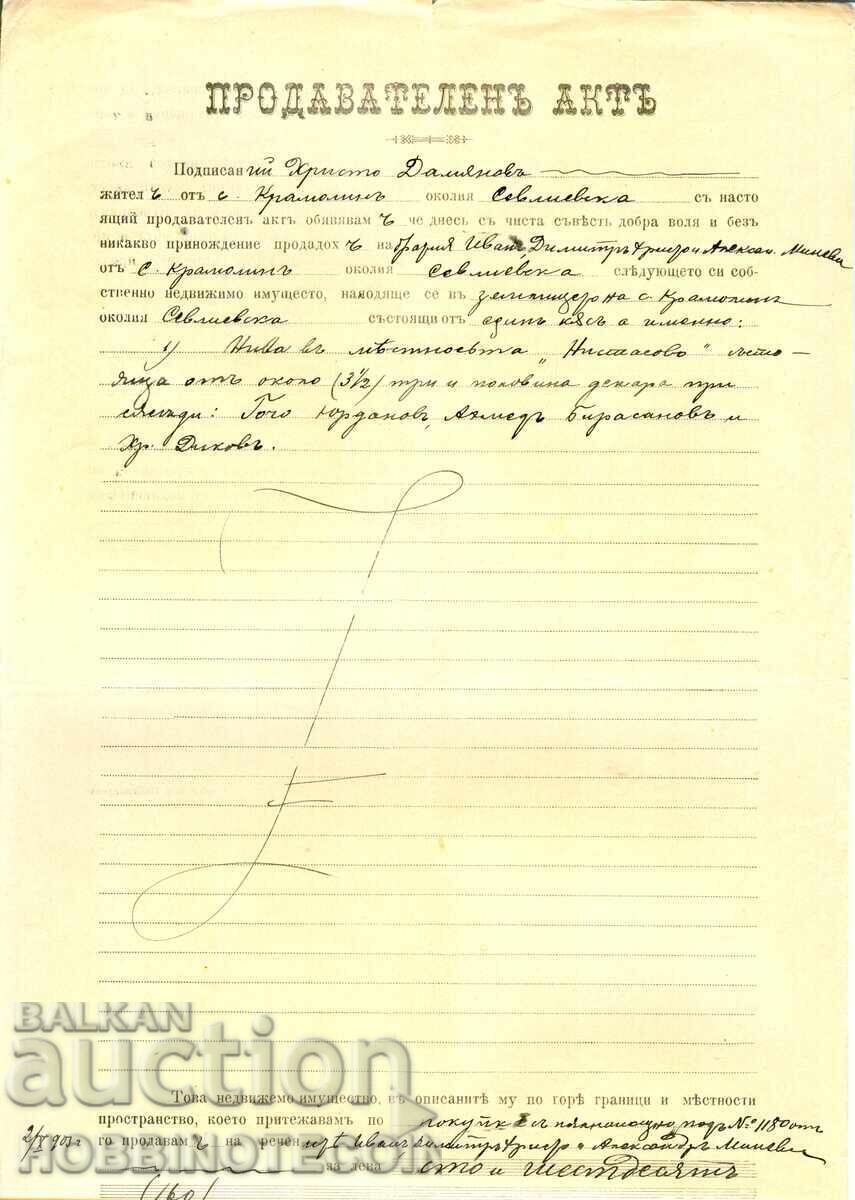 ПРОДАВАТЕЛЕНЪ АКТЪ
Подписан ий Христо Дамяновъ
жител ъ отъ с. Крамолинъ околия Севлиевска съ насто
ящий продавателенъ актъ обявявам ъ че днесь съ чиста съвѣсть добра воля и безъ
никакво принождение продадох ъ на братия Иванъ, Димитръ и Алексан. Миневи
отъ с. Крамолинъ околия Севлиевска слѣдующето си соб-
ственно недвижимо имущесто, находяще се въ землището на с. Крамолинъ
околия Севлиевска състоящи отъ единъ кѫсъ а именно:
1) Нива въ мѣстностьта " " състо-
яща отъ около (3 1/2) три и половина декара при
сѫседи: Гочо Юрдановъ, Ахмедъ и
Хр. Диковъ.
Това недвижемо имущество, въ описанитѣ му по горѣ граници и мѣстности
пространство, което притежавамъ по покупка съ подъ № 1180 отъ
го продавам ъ на речен итѣ Иванъ Димитръ и Александръ Миневи
за лева сто и шестдесятъ
(160)
BALKAN
auction
HOBBINOTES